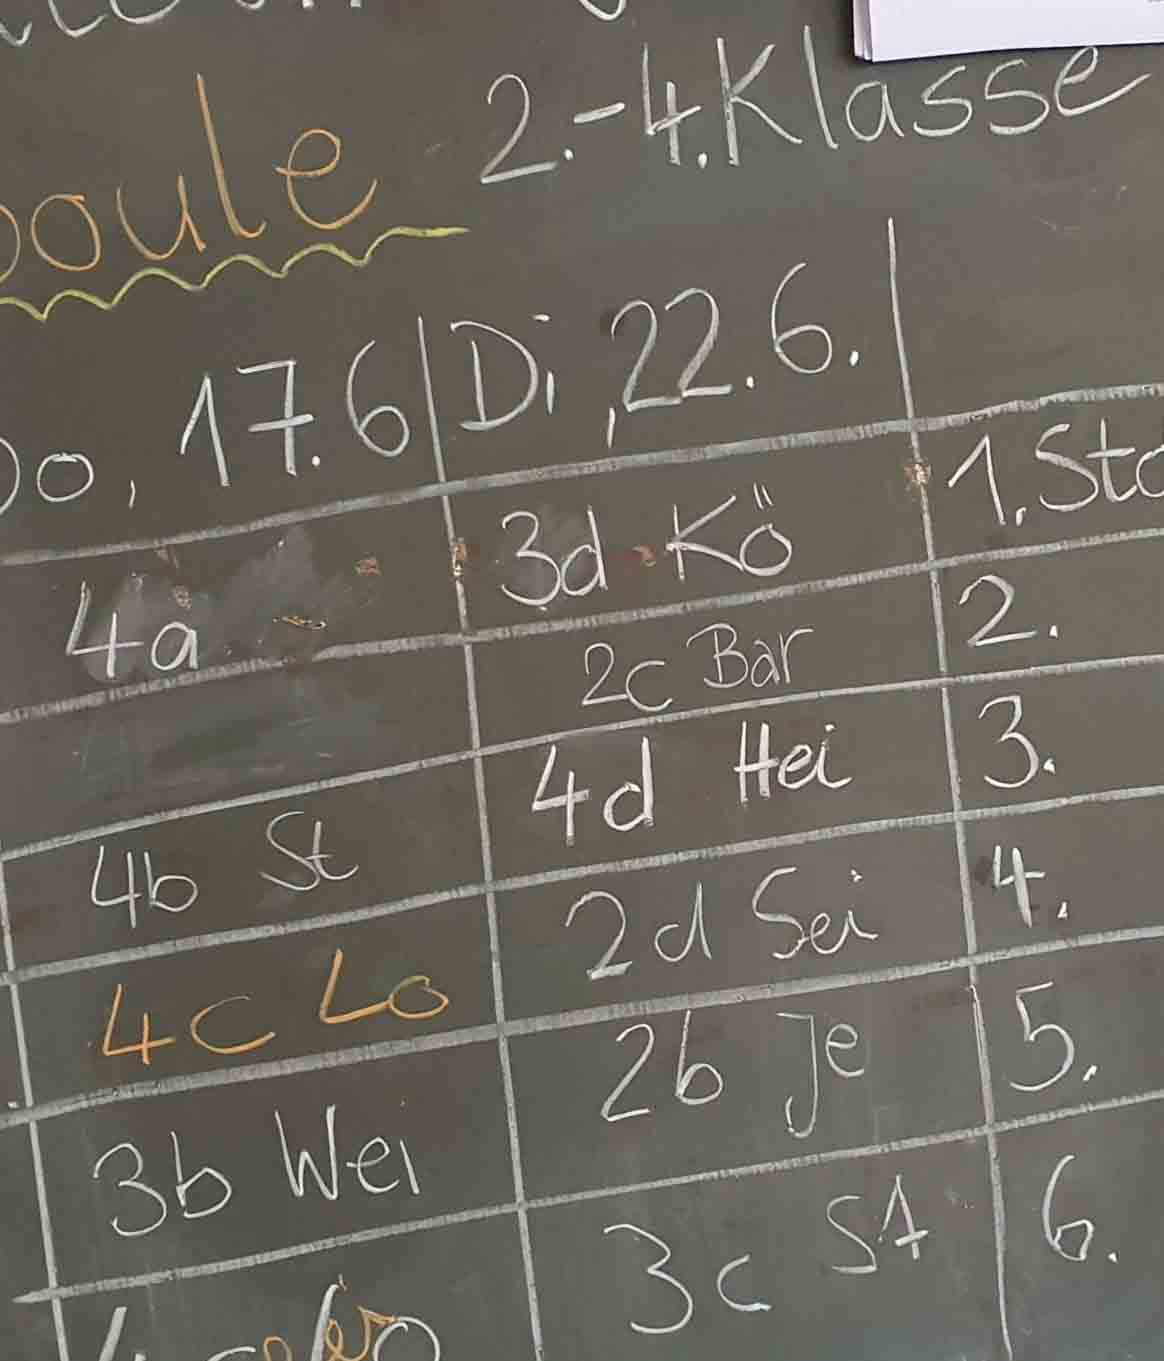 2.-4.Klasse
oule
Do, 17.6 Di, 22.6.
4a 3d Kö 1. Std
2c Bar 2.
4d Hei 3.
4b St 2d Sei 4.
4c Lo 2b Je 5.
3b Wei 3c St 6.